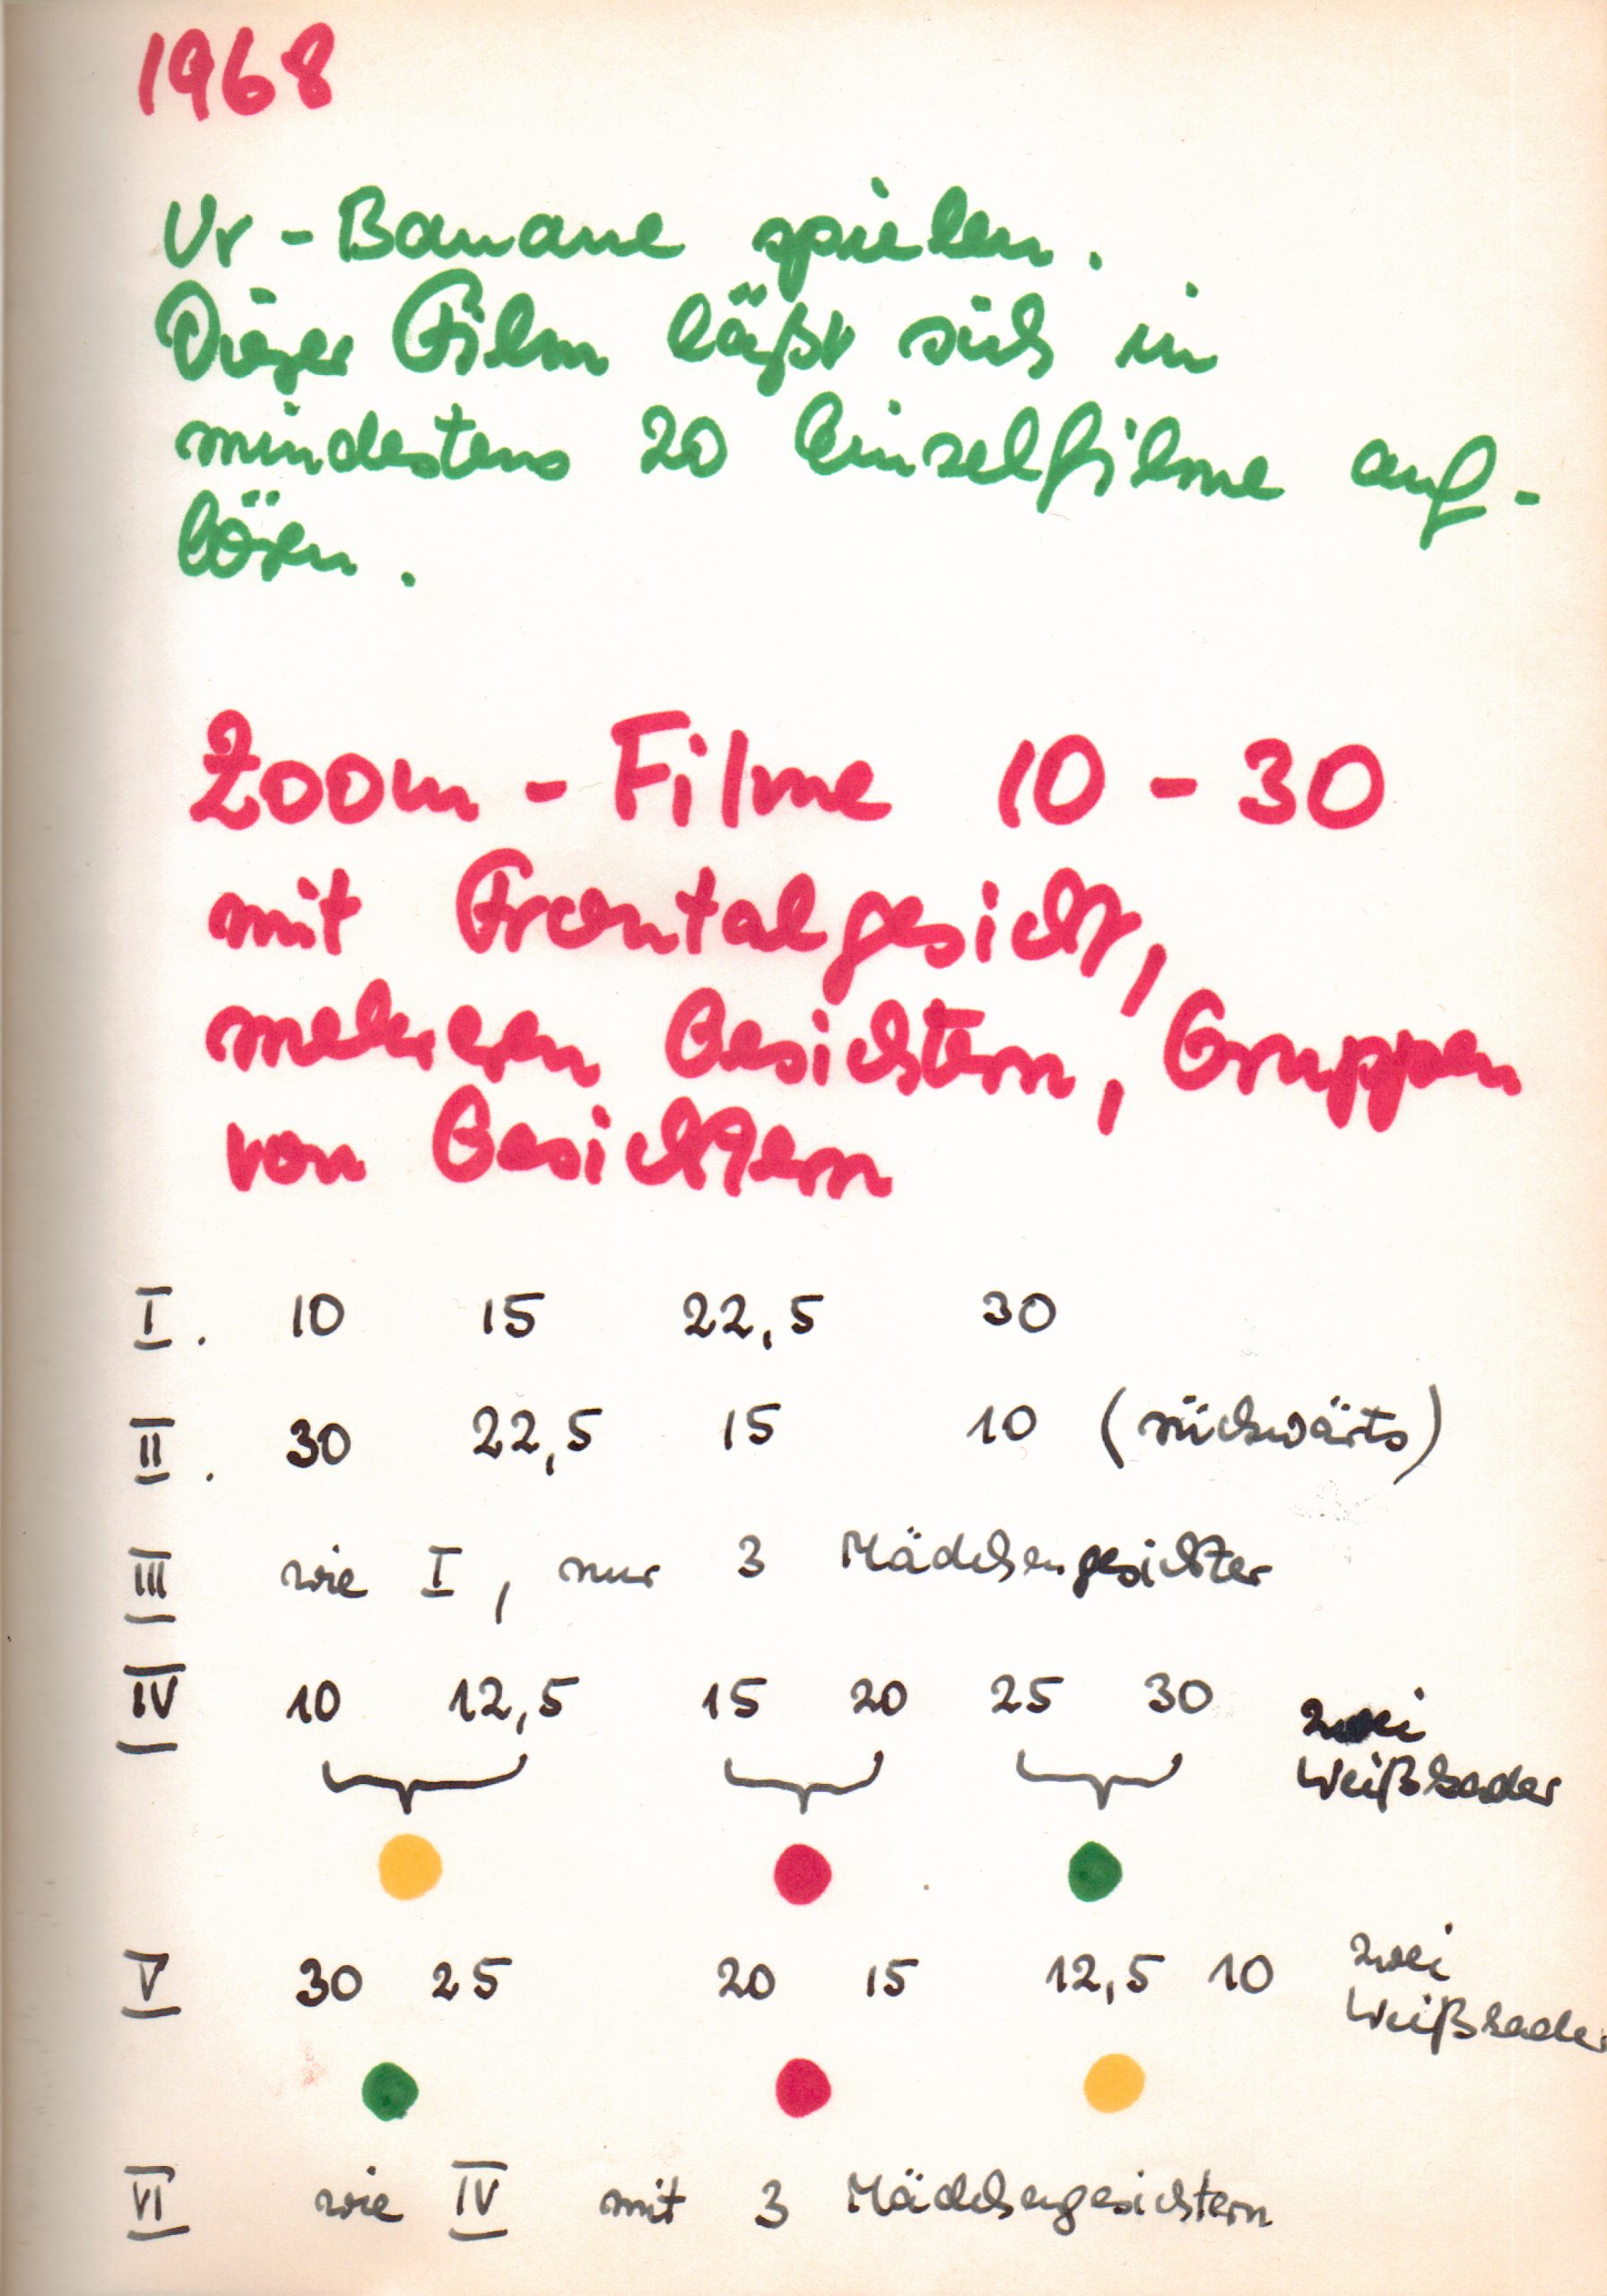 1968
Ur - Banane spielen.
Dieser Film läßt sich in
mindestens 20 Einzelfilme auf-
lösen.
Zoom - Filme 10 - 30
mit Frontalgesicht,
mehreren Gesichtern, Gruppen
von Gesichtern
I. 10 15 22,5 30
II. 30 22,5 15 10 (rückwärts)
III wie I, nur 3 Mädchengesichter
IV 10 12,5 15 20 25 30 zwei
Weißkader
V 30 25 20 15 12,5 10 zwei
Weißkader
VI wie IV mit 3 Mädchengesichtern